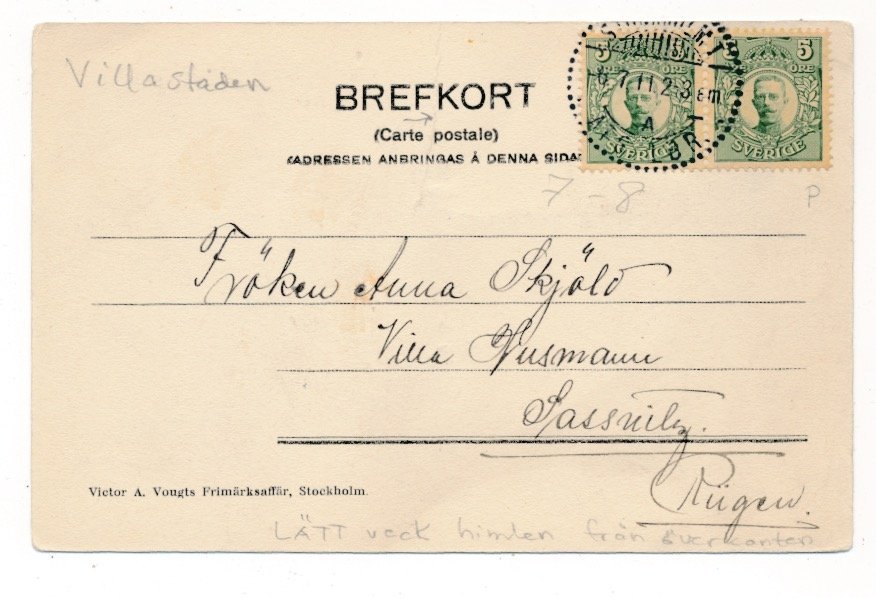 Villastaden
BREFKORT
(Carte postale)
(ADRESSEN ANBRINGAS Å DENNA SIDA)
5 ÖRE SVERIGE
5 ÖRE SVERIGE
6 7 11 2-3 em
A
7-8
P
Fröken Anna Skjöld
Villa Husmann
Sassnitz.
Rügen.
Victor A. Vougts Frimärksaffär, Stockholm.
LÄTT veck himlen från överkanten